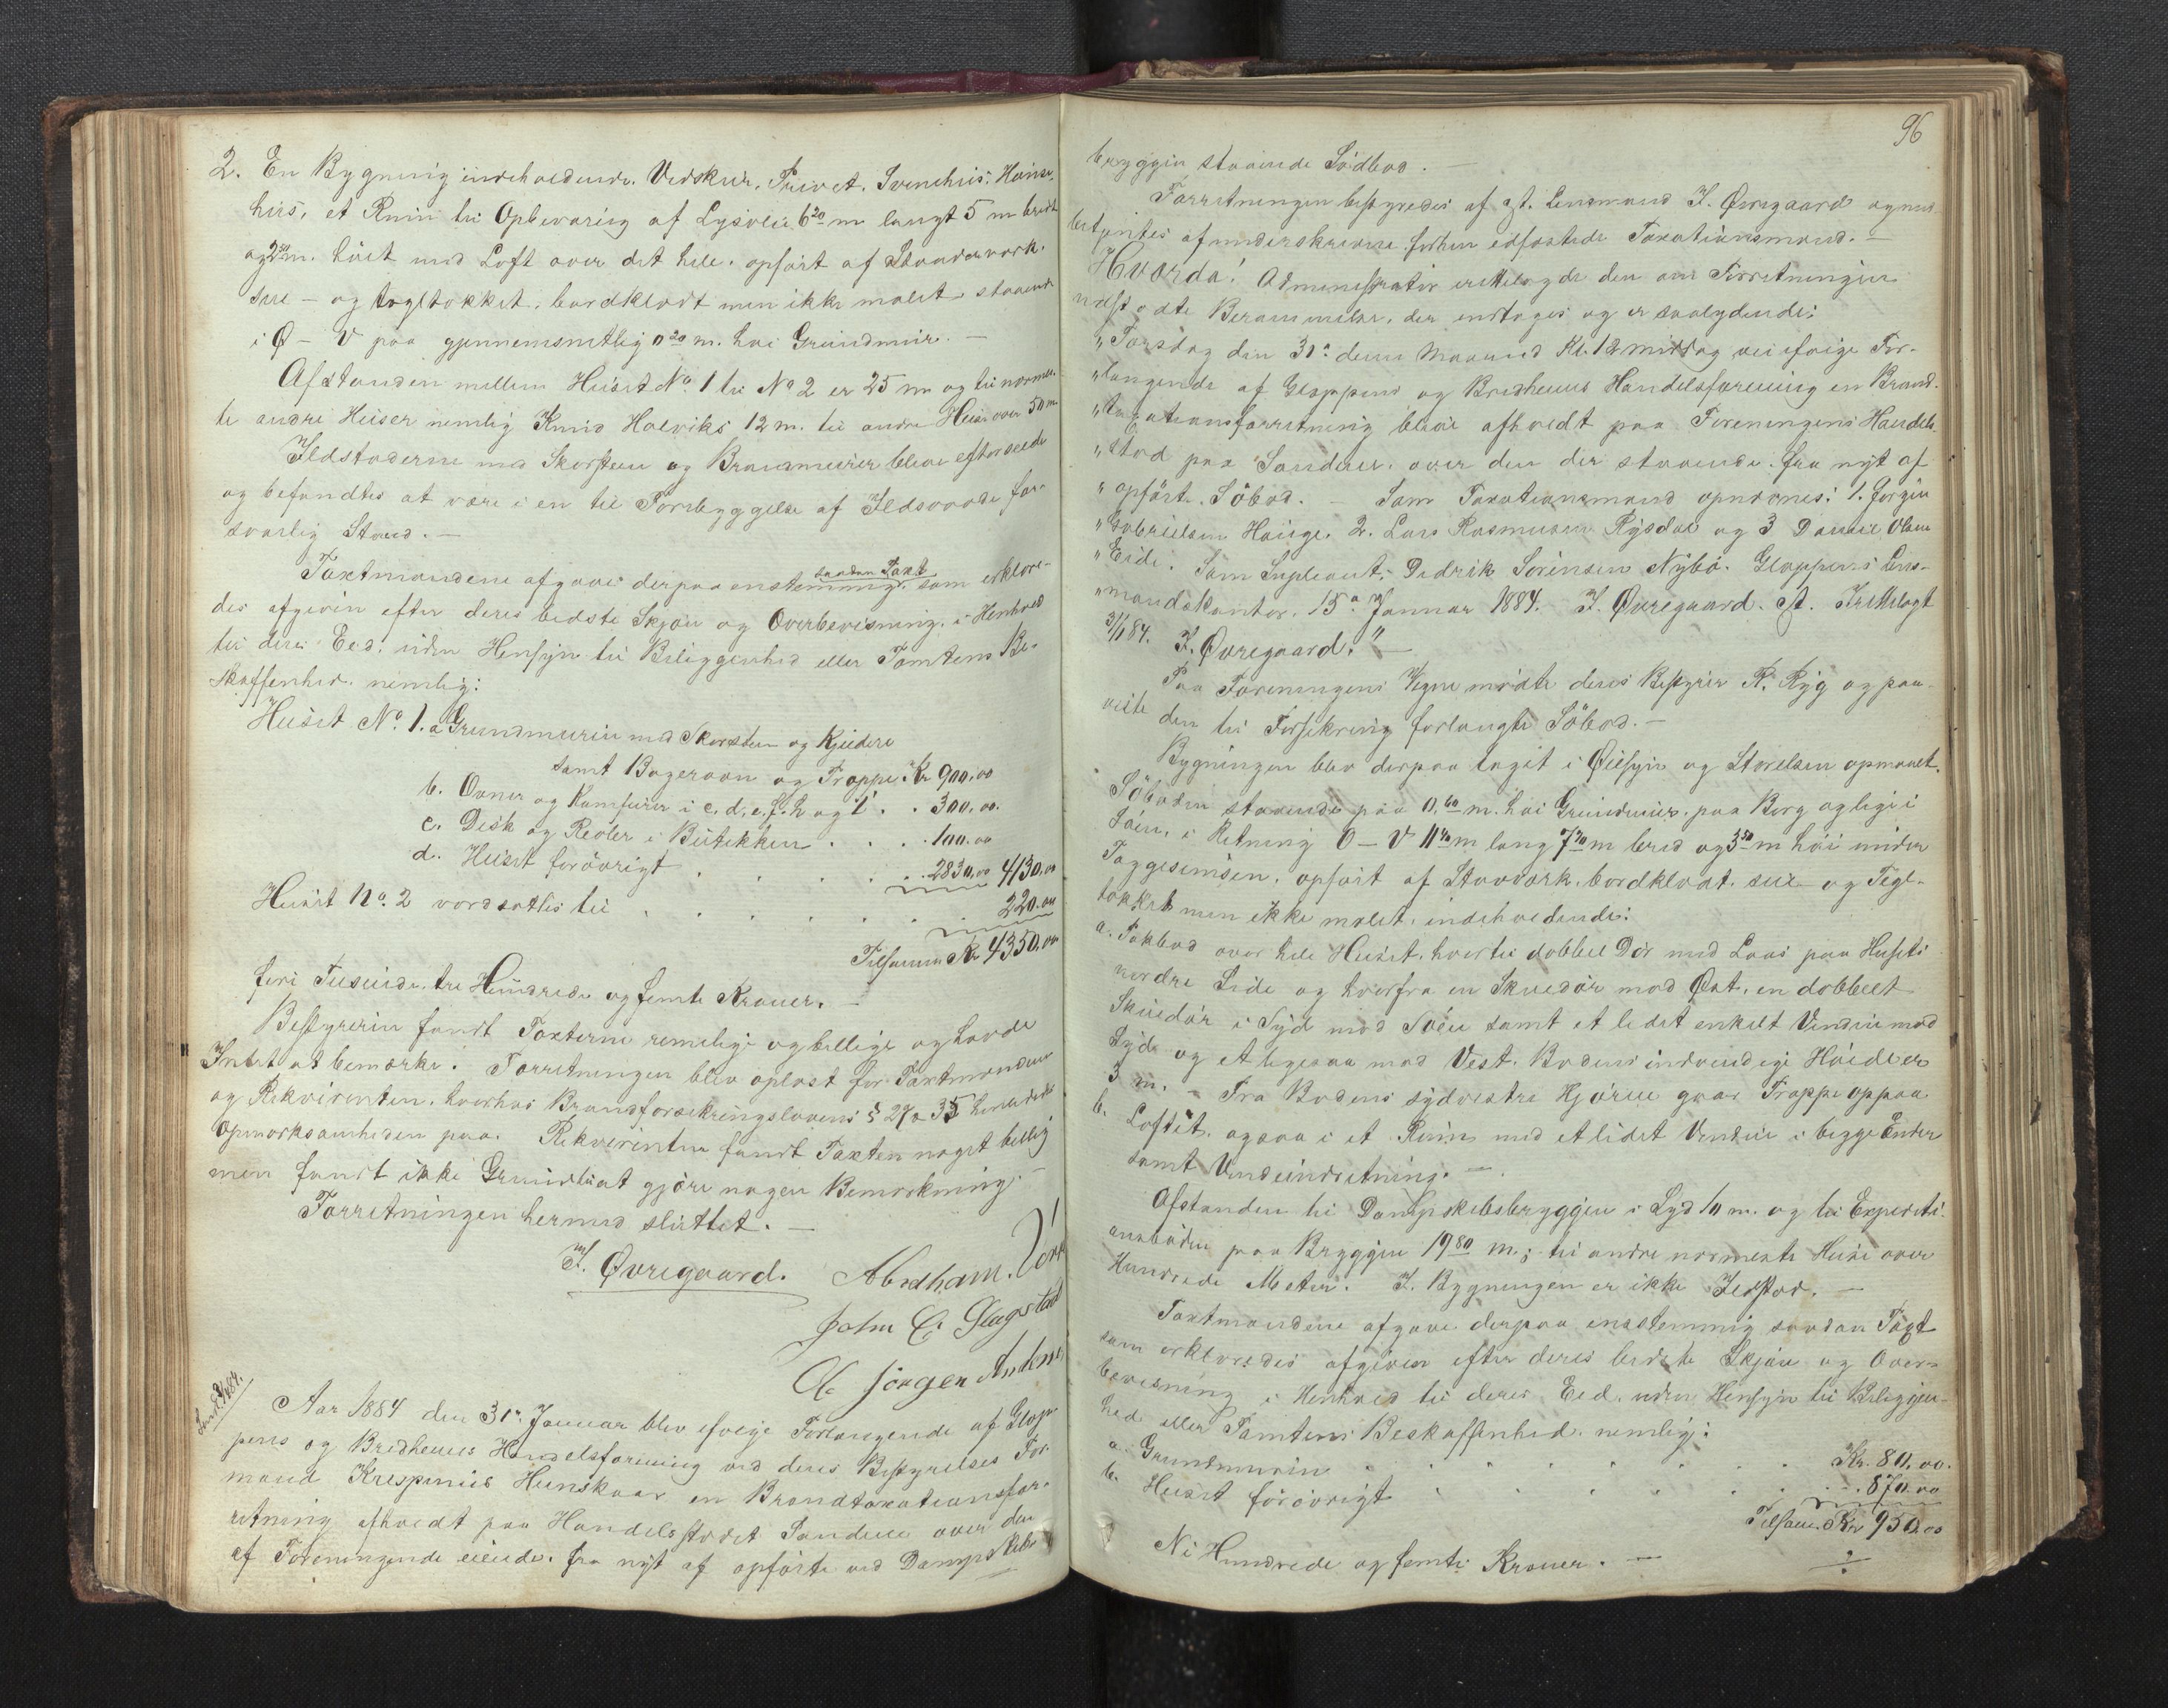 2. En Bygning indeholdende Vedskur, Privet, Svinehus, Hønse-
hus, et Rum til Opbevaring af Lysolie 6 20 m langt 5 m bredt
og 2 50 m. høit med Loft over det hele, opført af Staaverværk
sue- og tegltækket, bordklædt men ikke malet, staaende
i Ø - V paa gjennemsnitlig 0 20 m. høi Grundmur. -
Afstanden mellem Huset No 1 til No 2 er 25 m og til nærmes-
te andre Huser nemlig Knud Holviks 12 m. til andre Huse over 50 m
Ildstæderne med Skorsten og Brandmurer bleve efterseede
og befandtes at være i en til Forebyggelse af Ildsvaade for-
svarlig Stand. -
Taxtmændene afgave derpaa enstemmig saadan Taxt som erklære-
des afgiven efter deres bedste Skjøn og Overbevisning, i Henhold
til deres Eed, uden Hensyn til Beliggenhed eller Tomtens Be-
skaffenhed, nemlig:
Huset No. 1. a Grundmuren med Skorsten og Kjelder
samt Bagerovn og Trappe Kr 900.00
b. Ovner og Komfurer i c, d, e, f, h og i . . 300.00.
c. Disk og Reoler i Butikken . . . . 100.00
d. Huset forøvrigt . . . . . 2830.00 4130.00
Huset No. 2 værdsattes til . . . . . . . 220.00
Tilsammen Kr 4350.00
fire Tusinde, tre Hundrede og femti Kroner. -
Bestyreren fandt Taxterne rimelige og billige og havde
Intet at bemærke. Forretningen blev oplæst for Taxtmændene
og Rekvirenten, hvorhos Brandforsikringslovens § 27 a 35 henlededes
Opmærksomheden paa. Rekvirenten fandt Taxten noget billig
men fandt ikke Grund til at gjøre nogen Bemærkning. -
Forretningen hermed sluttet. -
I. Øvregaard. Abraham
John C.
Jørgen Anders
Aar 1884 den 31te Januar blev ifølge Forlangende af Glop-
pens og Bredheims Handelsforening ved deres Bestyrelses For-
mand Krispinus Hunskaar en Brandtaxationsfor-
retning afholdt paa Handelsstedet Sandene over den
af Foreningende eiende, fra nyt af opførte ved Dampskibs-
96
bryggen staaende Södbod. -
Forretningen bestyredes af cst. Lensmand I. Øvregaard og med-
betjentes af underskrevne forhen edfæstede Taxationsmænd. -
Hvorda! Administrator irettelagde den om Forretningen
udstedte Berammelse, der indtages og er saalydende:
"Torsdag den 31te denne Maaned Kl. 12 middag vil ifølge For-
"langende af Gloppens og Bredheims Handelsforening en Brand-
"taxationsforretning blive afholdt paa Foreningens Handels-
"sted paa Sandene, over den der staaende, fra nyt af
"opførte Söbod. - Som Taxationsmænd opnævnes: 1. Jørgen
"Gabrielsen Hauge. 2. Lars Rasmusen Rysdal og 3 Daniel Olsen
"Eide. Som Supleant: Didrik Sörensen Nybö. Gloppens Lens-
"mandskontor, 15de Januar 1884. I. Øvregaard. cst. Irettelagt
31/1 84. I. Øvregaard." -
Paa Foreningens Vegne mødte deres Bestyrer R. Ryg og paa-
viste den til Forsikring forlangte Söbod. -
Bygningen blev derpaa taget i Øiesyn og Størelsen opmaalt.
Söboden staaende paa 0,60 m. høi Grundmur, paa Berg og lige i
Søen, i Retning O - V 11 40 m lang 7 70 m bred og 3 50 m høi under
Taggesimsen, opført af Stavværk, bordklædt, sue- og Tegl-
tækket men ikke malet, indeholdende:
a. Pakbod over hele Huset, hvortil dobbelt Dør med Laas paa Husets
nordre Side og hvorfra en Skuedør mod Øst, en dobbelt
Skuedør i Syd mod Søen samt et lidet enkelt Vindue mod
Syd og et ligesaa mod Vest. Bodens indvendige Høide er
3 m. - Fra Bodens sydvestre Hjørne gaar Trappe op paa
b. Loftet, ogsaa i et Rum med et lidet Vindue i begge Ender
samt Vindeindretning. -
Afstanden til Dampskibsbryggen i Syd 10 m. og til Expediti-
onsboden paa Bryggen 19 80 m; til andre nærmeste Huse over
Hundrede Meter. I Bygningen er ikke Ildsted. -
Taxtmændene afgave derpaa enstemmig saadan Taxt
som erklæredes afgiven efter deres bedste Skjøn og Over-
bevisning i Henhold til deres Eed, uden Hensyn til Beliggen-
hed eller Tomtens Beskaffenhed, nemlig:
a. Grundmuren . . . . . . . Kr. 80.00.
b. Huset forøvrigt . . . . . . . 870.00
Tilsam. Kr 950.00
Ni Hundrede og femti Kroner. -